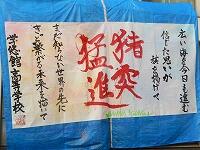 広い海を今日も進む
信じた思いが
旗を揚げて
猪突
猛進
まだ知らない世界の先に
きっと繋がる未来を描いて
学悠館高等学校